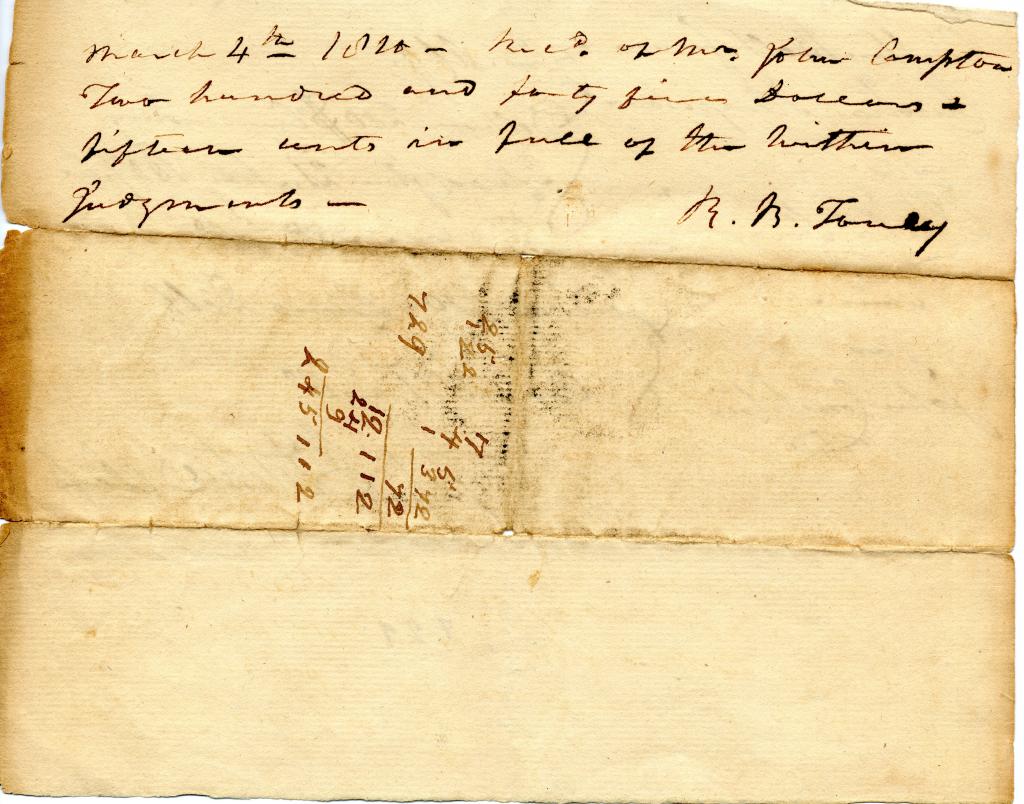 March 4th 1810 – Rec'd. of Mr. John Compton
Two hundred and forty five Dollars &
fifteen cents in full of the within
Judgments –
R. B. Taney
25
7.29
24 9
245 112